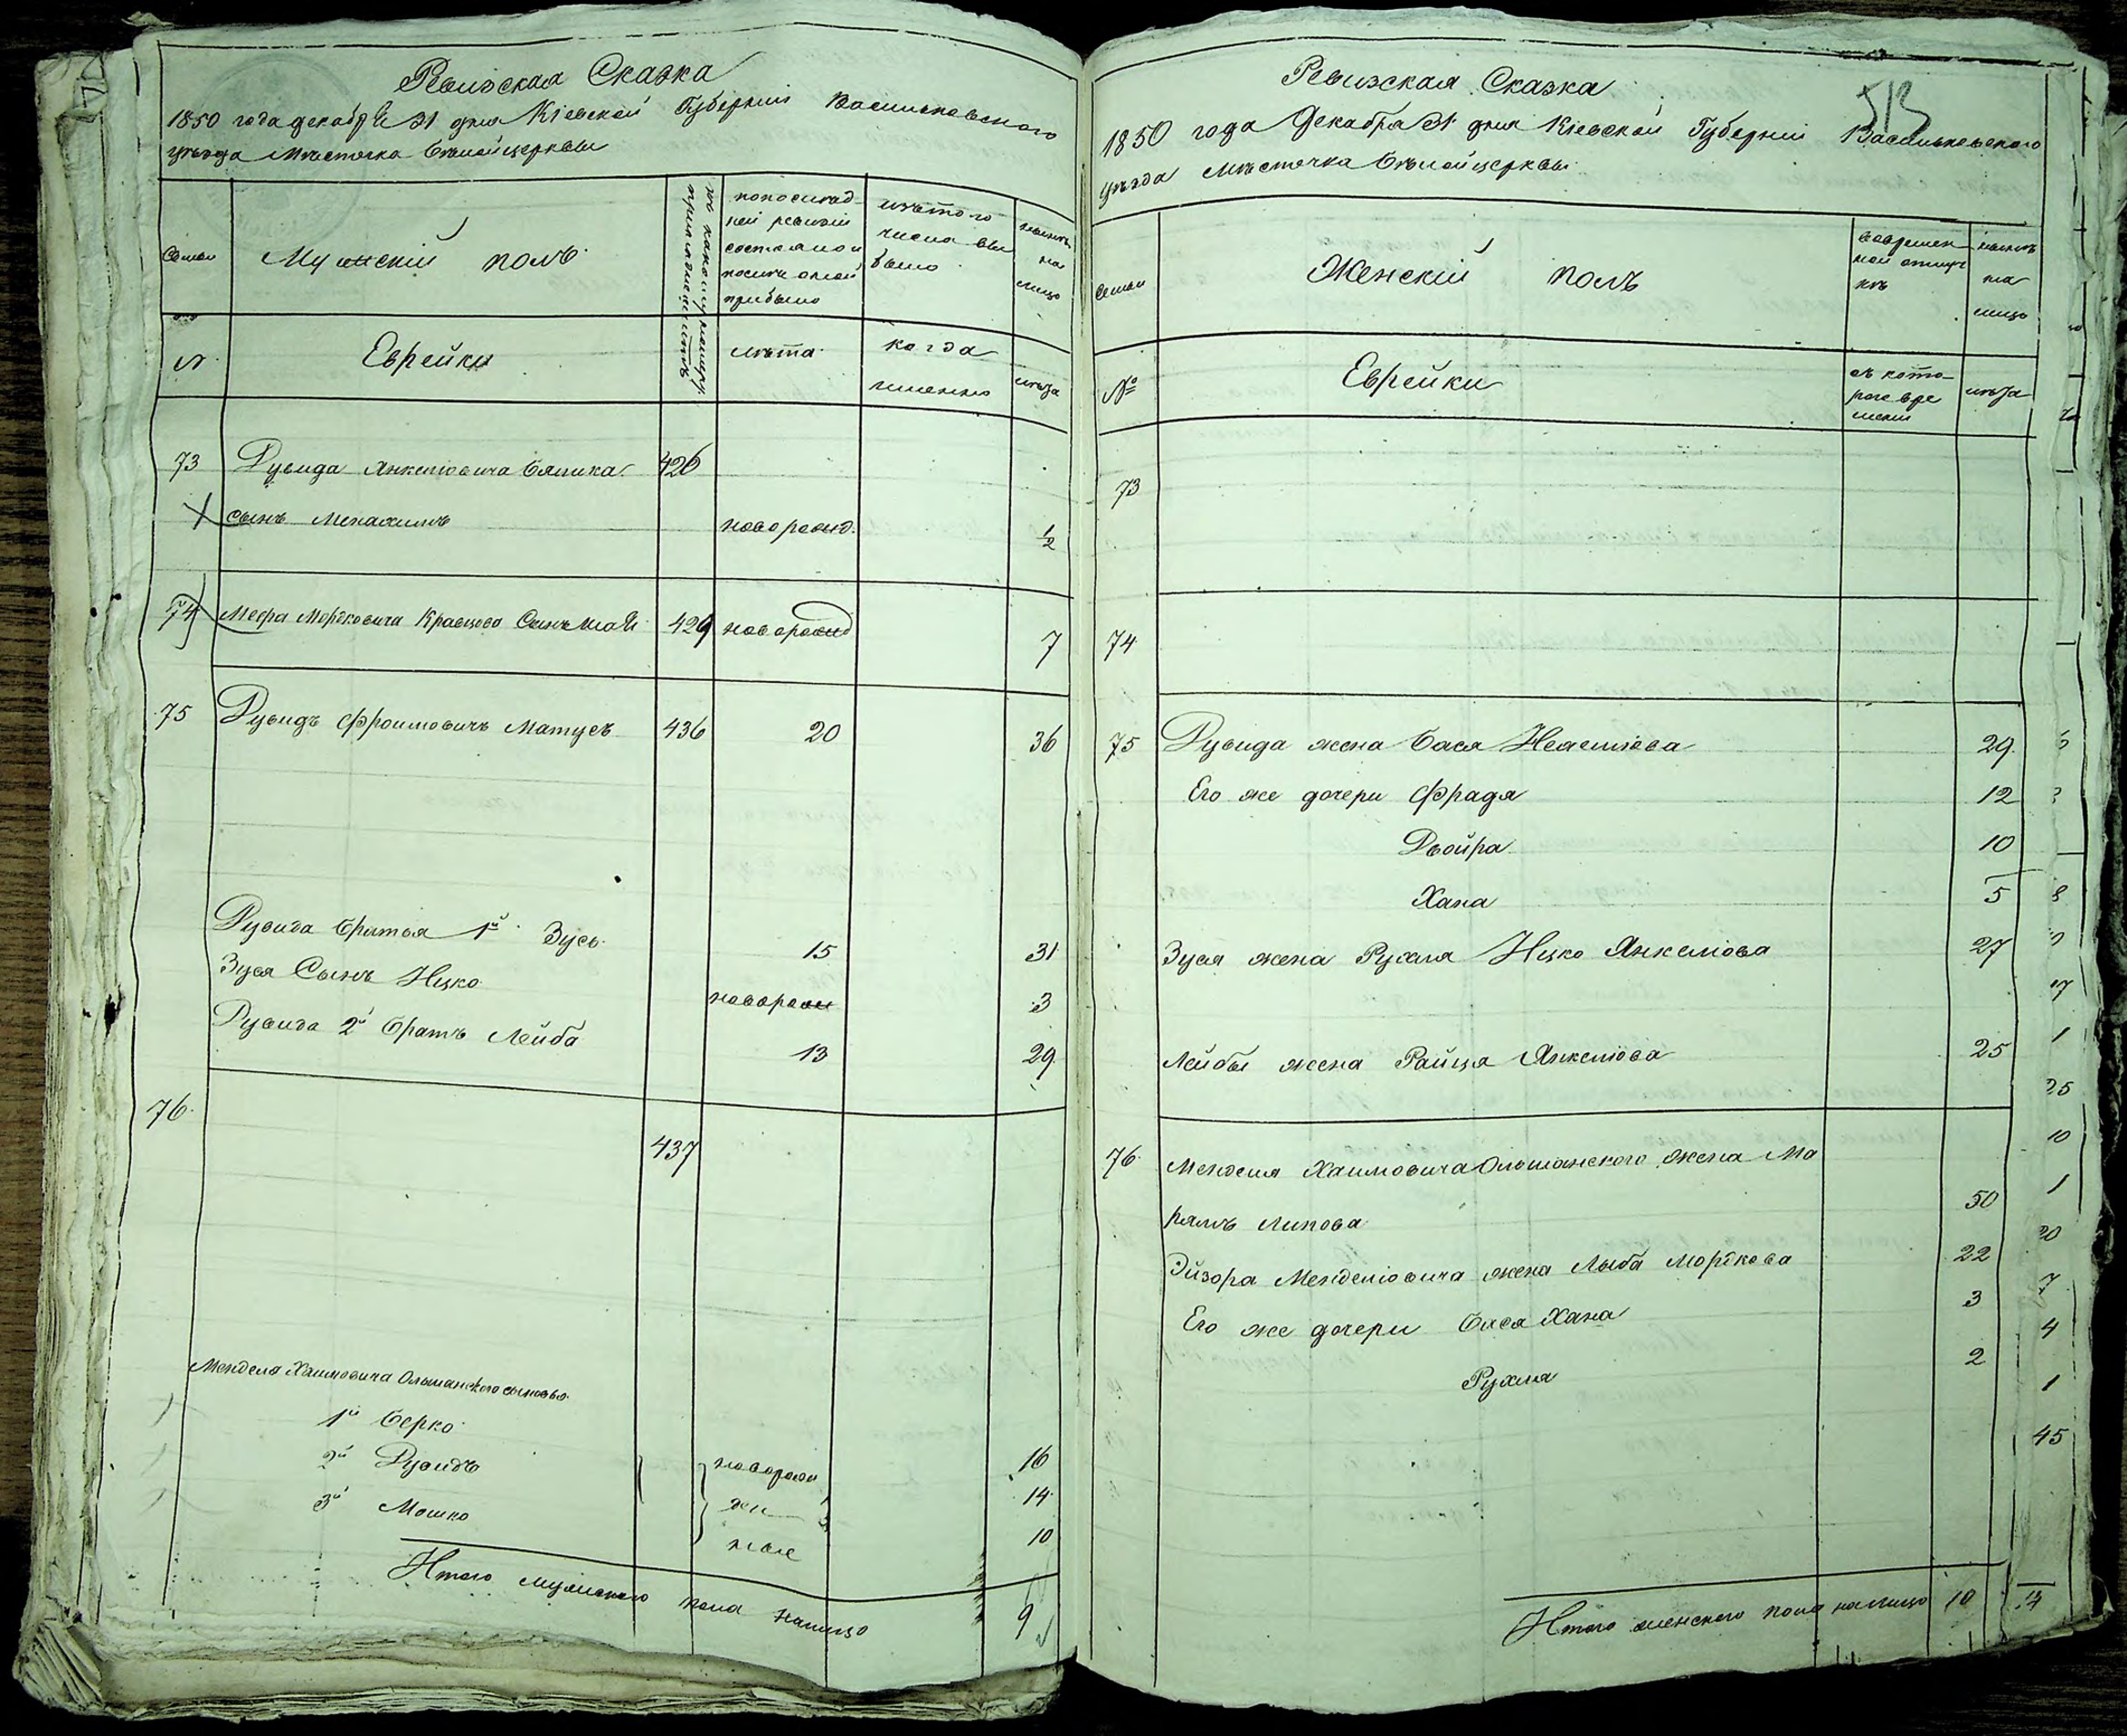 Ревизская Сказка
1850 года декабря 31 дня Кіевской Губерніи Васильковского
уѣзда Мѣстечка Бѣлойцерквы
Семьи
Мужескій полъ
подъ какимъ номеромъ
по послѣд
ней ревизіи
состояло и
послѣ оной
прибыло
изъ того
числа вы
было
нынѣ
на
лицо
№
Еврейки
лѣта
когда
именно
лѣта
73 Дувида Янкелювича Бялика 426
сынъ Менахимъ новорожд. 1/2
74 Меера Мордковича Кравцова Сынъ 429 новорожд 7
75 Дувидъ Фроимовичъ Матусъ 436 20 36
Дувида братья 1й Зусь 15 31
Зуся Сынъ Ицко новорож 3
Дувида 2й братъ Лейба 13 29
76
437
Менделя Хаимовича Ольшанского сыновья
1й Берко 16
2й Дувидъ новорож 14
3й Мошко 10
Итого мужеского пола налицо 9
513
Ревизская Сказка
1850 года Декабря 31 дня Кіевской Губерніи Васильковского
уѣзда Мѣстечка Бѣлойцерквы
Семьи
Женскій полъ
во времен
ной отлуч
кѣ
нынѣ
на
лицо
№
Еврейки
съ кото
раго вре
мени
лѣта
73
74
75 Дувида жена Бася 29
Его же дочери Фрадя 12
Двойра 10
Хана 5
Зуся жена Рухля Ицко Янкелюва 27
Лейбы жена Райця Янкелюва 25
76 Менделя Хаимовича Ольшанского жена Ма
рямъ Липова 50
Эйзора Менделювича жена Лыба Мордкова 22
Его же дочери Бася Хана 3
Рухля 2
Итого женского пола налицо 10